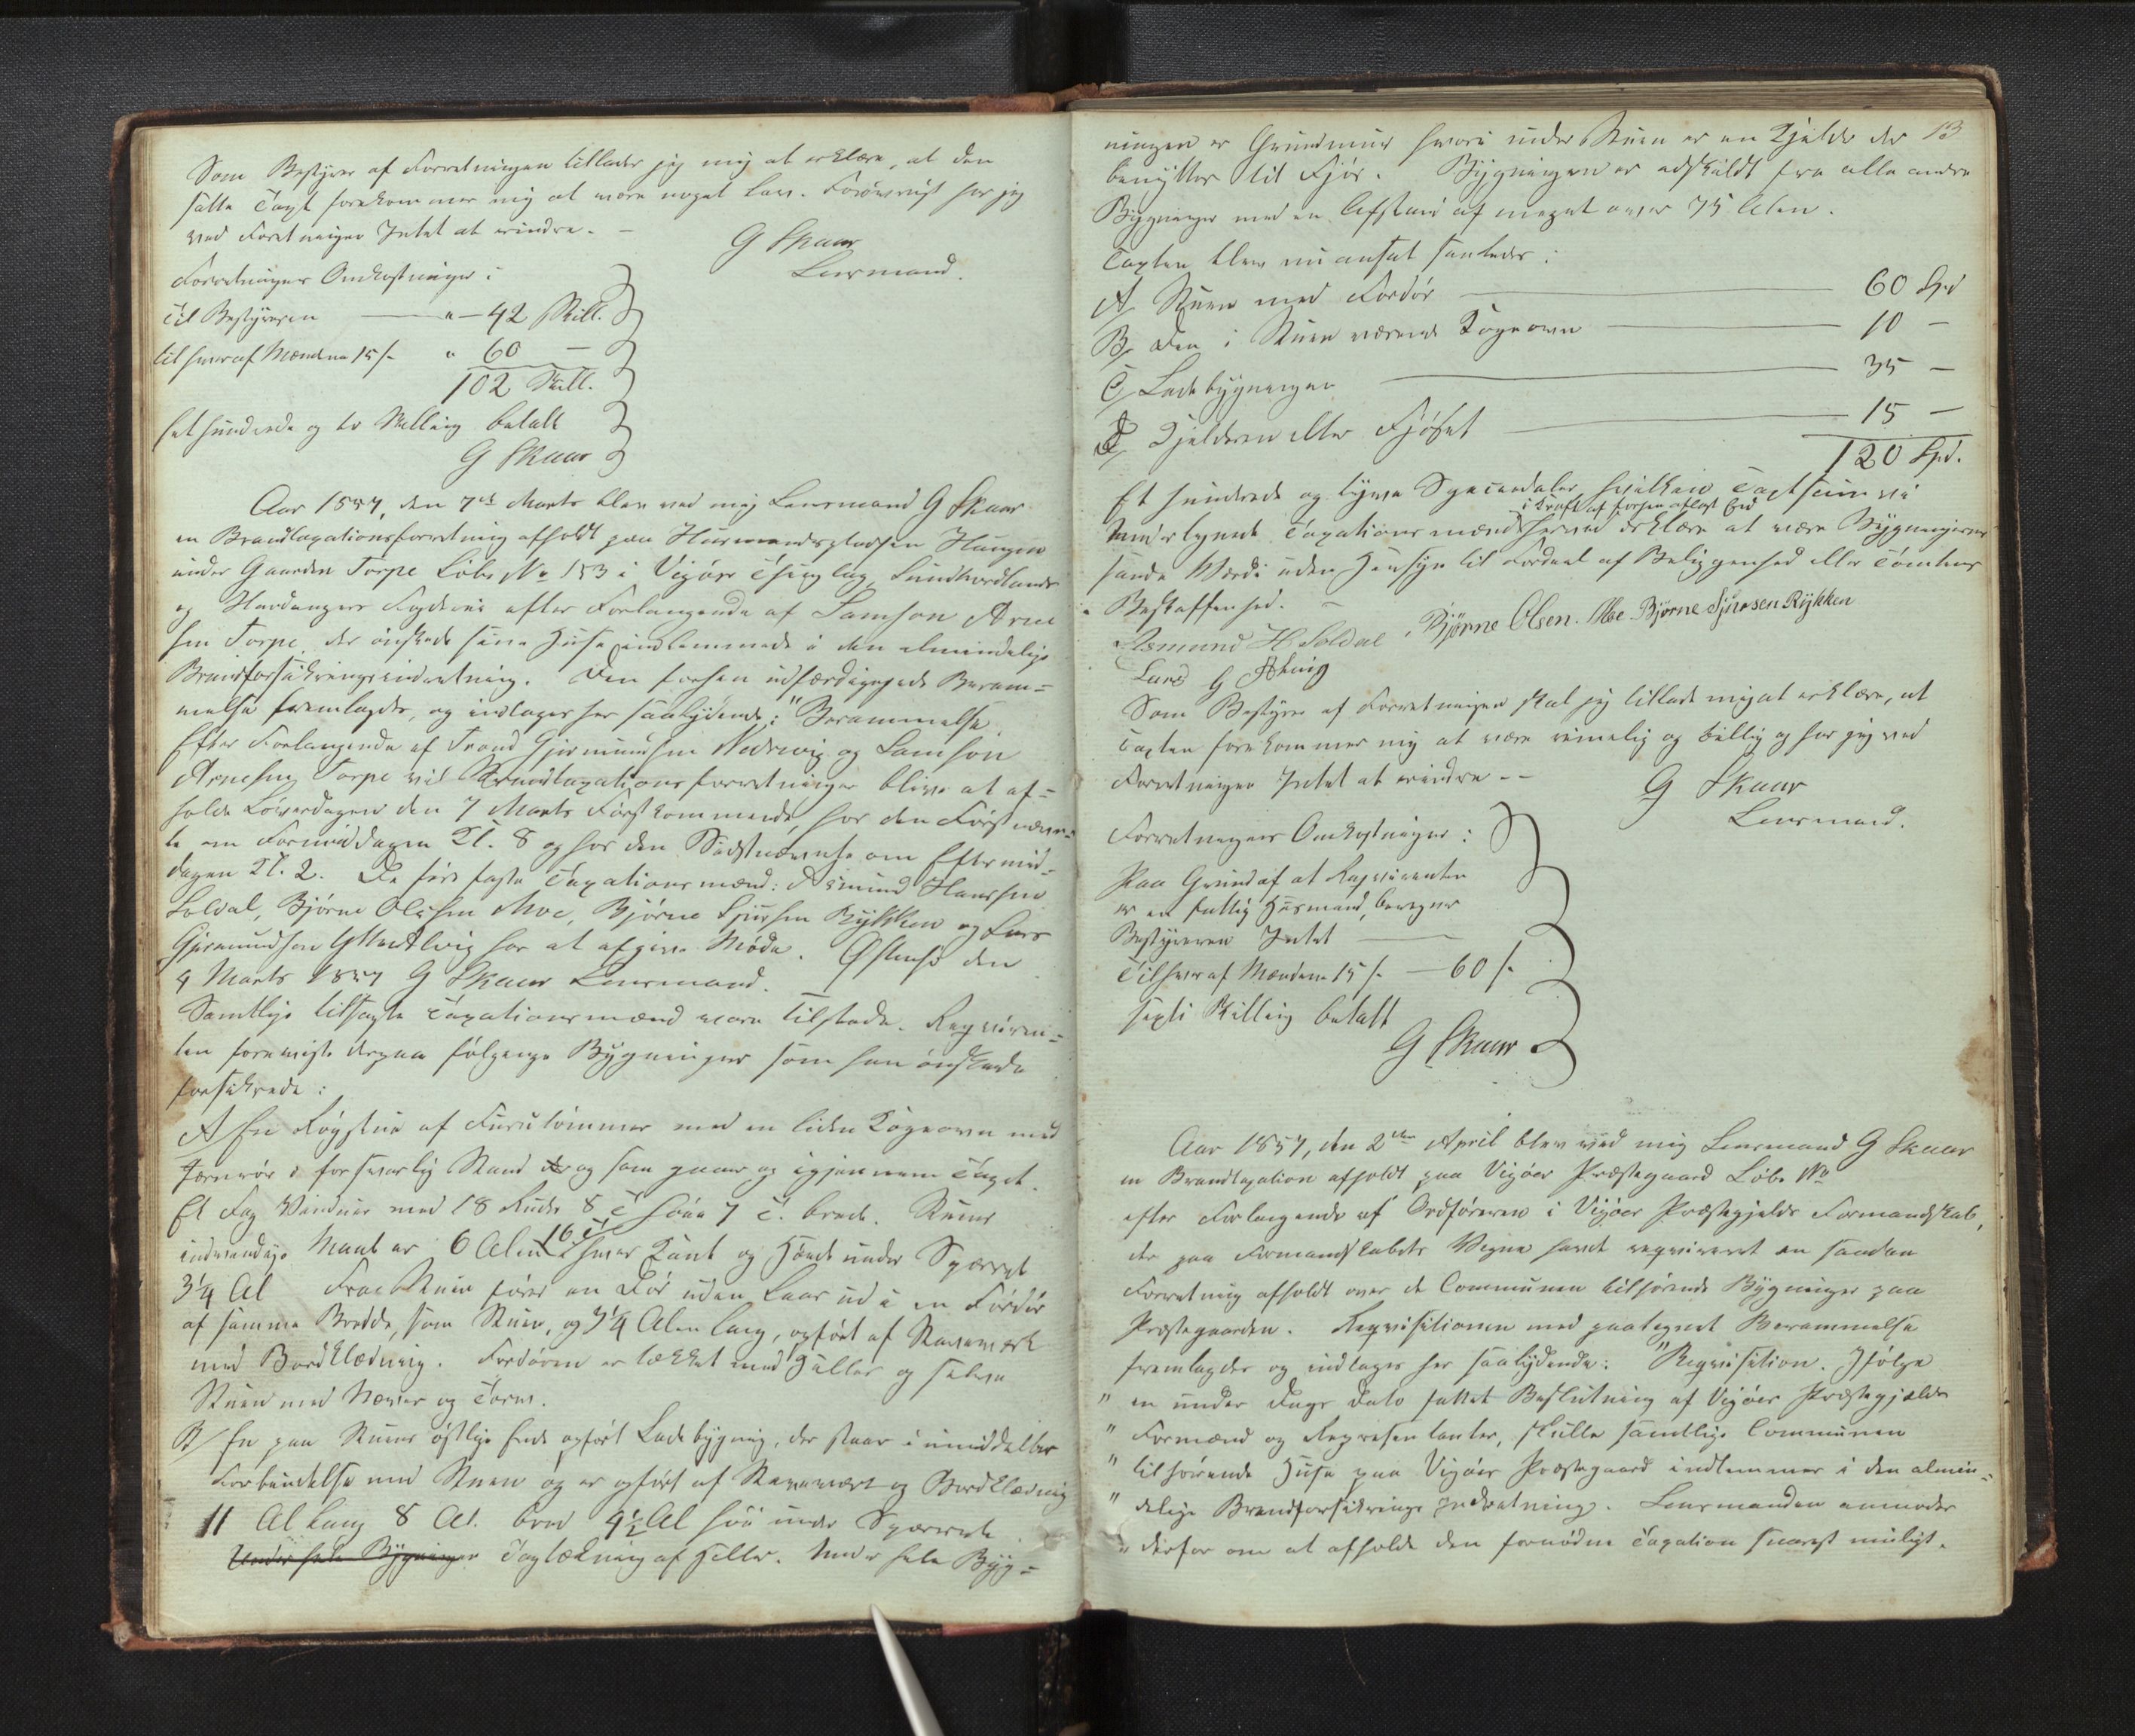 Som Bestyrer af Forretningen tillader jeg mig at erklære, at den
satte Taxt forekommer mig at være noget lav. Forøvrigt har jeg
ved Forretningen Intet at erindre. –
G Skaar
Lensmand.
Forretningens Omkostninger:
Til Bestyreren – " – 42 Skill.
til hver af Mændene 15 s. " 60 –
102 Skill.
Et hundrede og to Skilling betalt
G Skaar
Aar 1857, den 7de Marts blev ved mig Lensmand G Skaar
en Brandtaxationsforretning afholdt paa Huusmandspladsen Haugen
under Gaarden Torpe Løbe No 153 i Vigøer Thinglag, Sundhordlands
og Hardangers Fogderie efter Forlangende af Samson Arne
sen Torpe, der ønskede sine Huse indlemmede i den almindelige
Brandforsikringsindretning. Den forhen udfærdigede Beram=
melse fremlagdes, og indtages her saalydende: "Berammelse
Efter Forlangende af Trond Geirmundsen Nedrevig og Samson
Arnesen Torpe vil Brandtaxationsforretninger blive at af=
holde Løverdagen den 7 Marts førstkommende, hos den Førstnævn=
te om Formiddagen Kl. 8 og hos den Sidstnævnte om Eftermid=
dagen Kl. 2. De fire faste Taxationsmænd: Asmund Hansen
Soldal, Bjørne Olsen Moe, Bjørne Sjursen Rykken og Lars
Geirmundsen Aalvig har at afgive Møde. Østensø den
4 Marts 1857 G Skaar Lensmand.
Samtlige tilsagte Taxationsmænd vare tilstede. Reqviren=
ten foreviste derpaa følgende Bygninger som han ønskede
forsikrede:
A En Røgstue af Furutømmer med en liden Kogeovn med
Jernrør i forsvarlig Stand og som gaar op igjennem Taget.
Et Fag Vinduer med 18 Ruder 8 T. høie 7 T. brede. Stuens
indvendige Maal er 6 Alen 16 T. hver Kant og Høide under Sperret
3¼ Al Fra Stuen fører en Dør uden Laas ud i en Fordør
af samme Bredde, som Stuen, og 3¼ Alen lang, opført af Stavværk
med Bordklædning. Fordøren er tækket med Heller og selve
Stuen med Næver og Torv.
B/ En paa Stuens østlige Ende opført Ladebygning, der staar i umiddelbar
Forbindelse med Stuen og er opført af Stavværk og Bordklædning
11 Al lang 8 Al. bred 4½ Al høi under Sperrerne
Under hele Bygningen Tagtækning af Heller. Under hele Byg=
13
ningen er Grundmuur hvori under Stuen er en Kjelder der
benyttes til Fjøs. Bygningen er adskildt fra alle andre
Bygninger med en Afstand af meget over 75 Alen.
Taxten blev nu ansat saaledes:
A Stuen med Fordør – 60 Spd
B, Den i Stuen værende Kogeovn – 10 –
C, Ladebygningen – 35 –
D, Kjelderen eller Fjøset – 15 –
120 Spd.
Et hundrede og tyve Speciedaler, hvilken Taxtsum vi
i Kraft af forhen aflagt Eed
undertegnede Taxationsmænd herved erklære at være Bygningernes
sande Værdi uden Hensyn til Fordeel af Beliggenhed eller Tomtens
Beskaffenhed. –
Asmund H Soldal, Bjørne Olsen Moe. Bjørne Sjursen Rykken
Lars G Aalvig
Som Bestyrer af Forretningen skal jeg tillade mig at erklære, at
Taxten forekommer mig at være rimelig og billig og har jeg ved
Forretningen Intet at erindre. –
G Skaar
Lensmand.
Forretningens Omkostninger:
Paa Grund af at Reqvirenten
er en fattig Husmand, beregner
Bestyreren Intet –
Til hver af Mændene 15 s. – 60 s.
sexti Skilling betalt
G Skaar
Aar 1857, den 2den April blev ved mig Lensmand G Skaar
en Brandtaxation afholdt paa Vigøer Præstegaard Løbe No
efter Forlangende af Ordføreren i Vigøer Præstegjelds Formandskab,
der paa Formandskabets Vegne havde reqvireret en saadan
Forretning afholdt over de Communen tilhørende Bygninger paa
Præstegaarden. Reqvisitionen med paategnet Berammelse
fremlagdes og indtages her saalydende: "Reqvisition. Ifølge
" en under Dags Dato fattet Beslutning af Vigøer Præstegjelds
" Formænd og Repræsentanter, skulle samtlige Communen
" tilhørende Huse paa Vigøer Præstegaard indlemmes i den almin=
" delige Brandforsikrings Indretning. Lensmanden anmodes
" derfor om at afholde den fornødne Taxation snarest muligt.